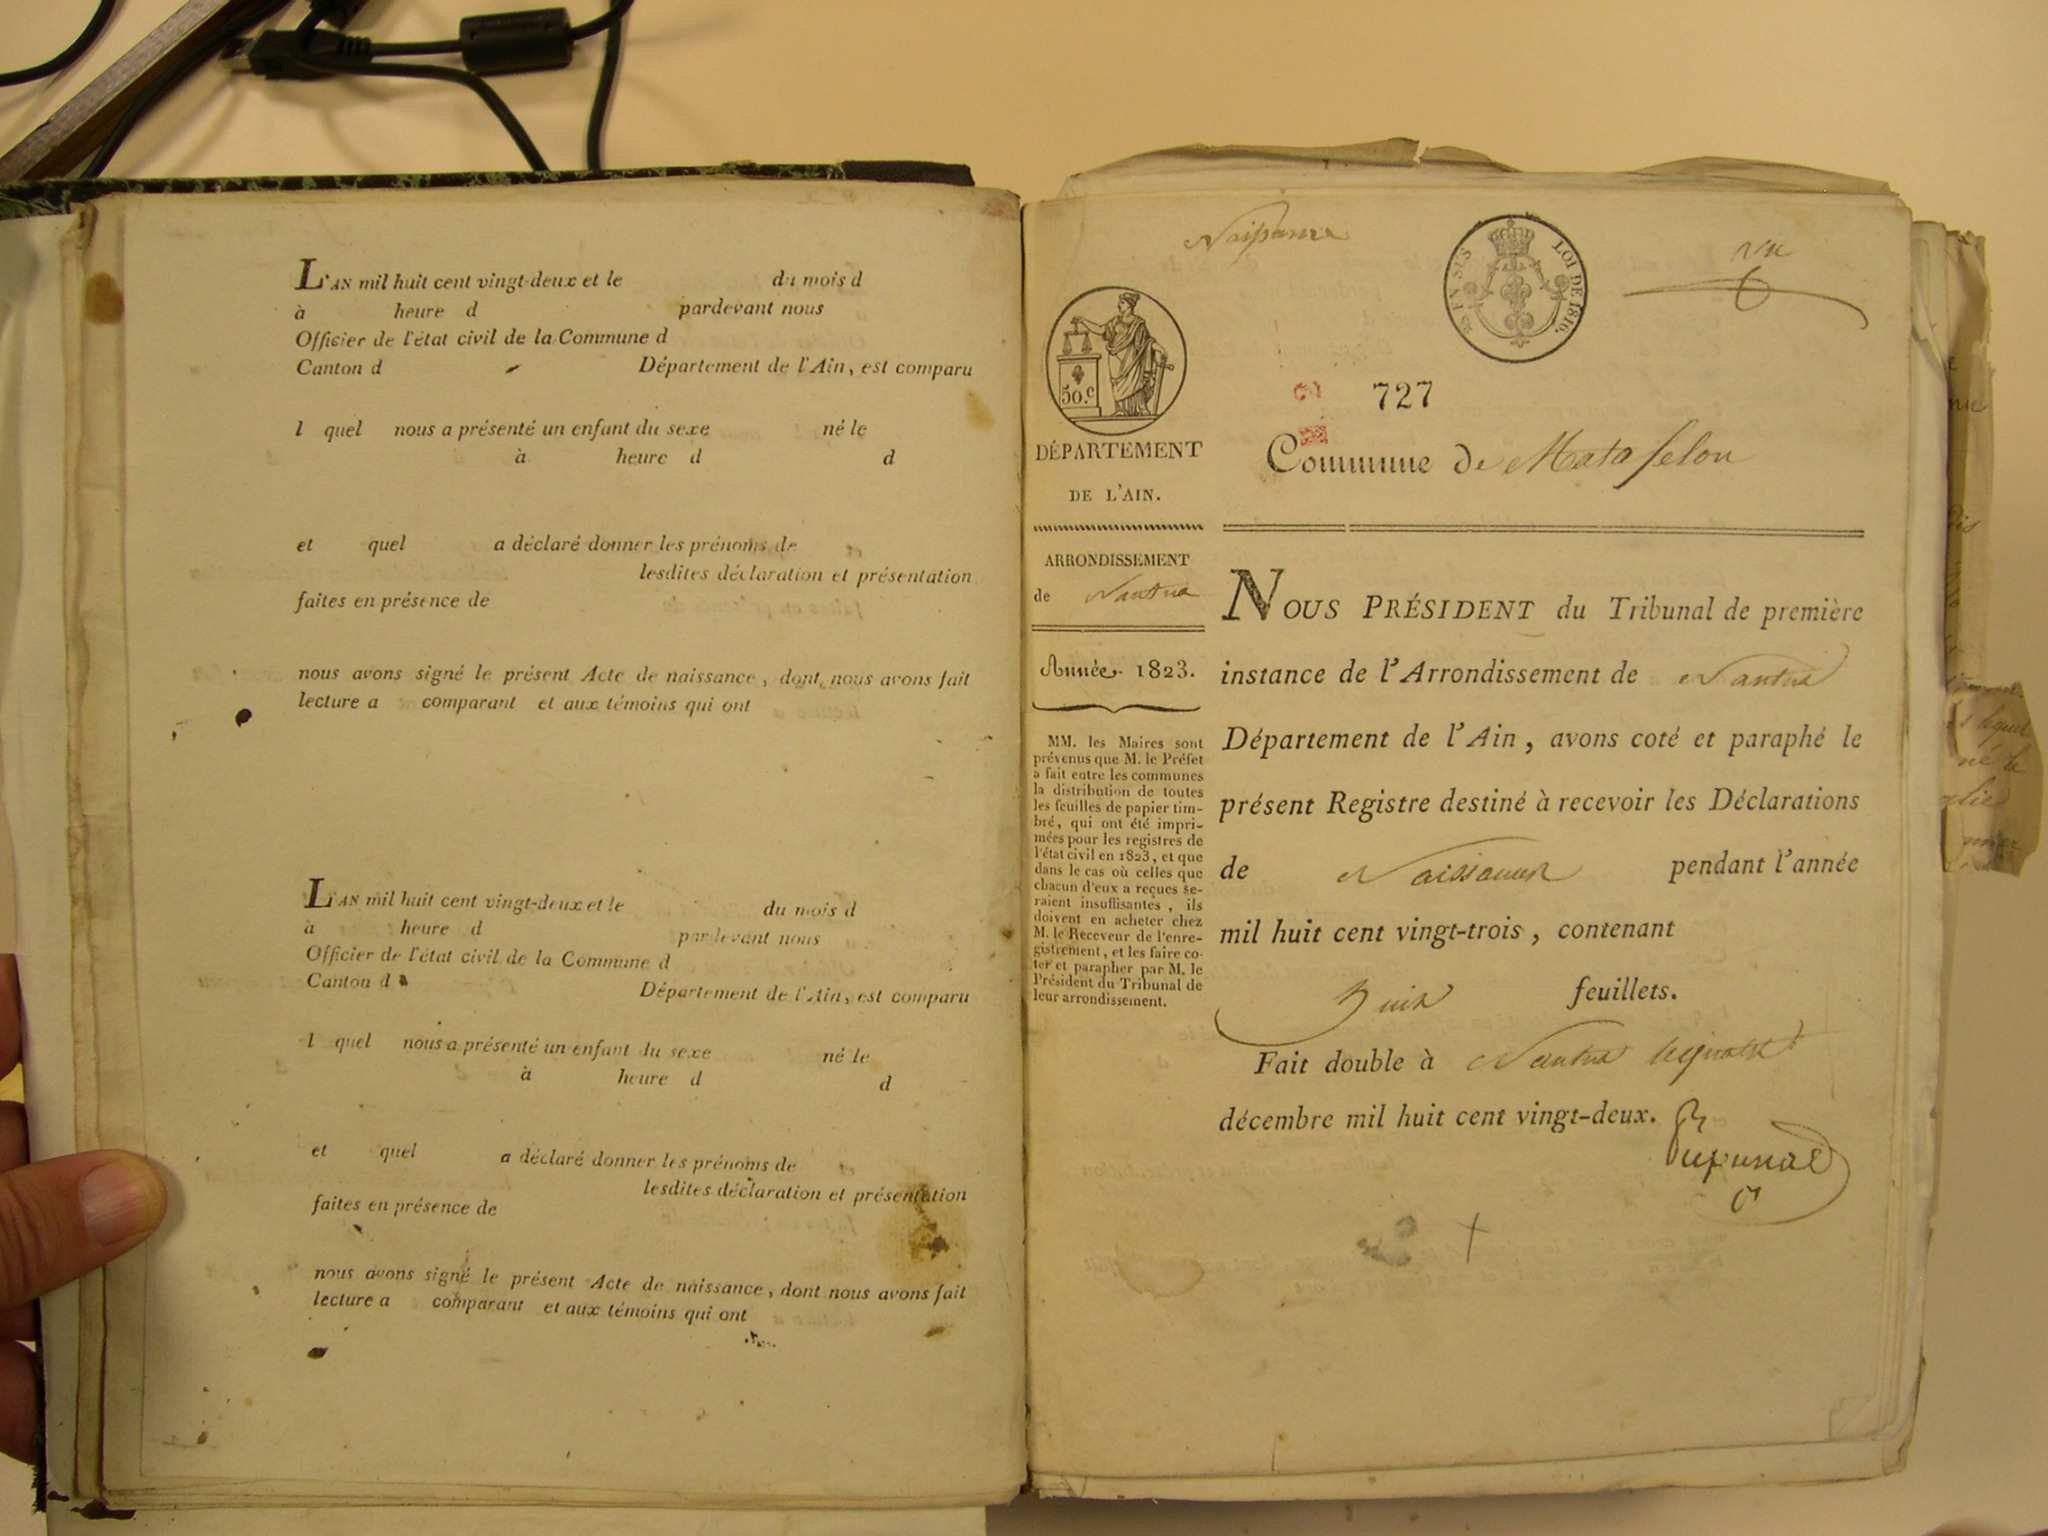 L'AN mil huit cent vingt-deux et le du mois d
à heure d pardevant nous
Officier de l'état civil de la Commune d
Canton d Département de l'Ain, est comparu
l quel nous a présenté un enfant du sexe né le
à heure d d
et quel a déclaré donner les prénoms de
lesdites déclaration et présentation
faites en présence de
nous avons signé le présent Acte de naissance, dont nous avons fait
lecture a comparant et aux témoins qui ont
L'AN mil huit cent vingt-deux et le du mois d
à heure d pardevant nous
Officier de l'état civil de la Commune d
Canton d Département de l'Ain, est comparu
l quel nous a présenté un enfant du sexe né le
à heure d d
et quel a déclaré donner les prénoms de
lesdites déclaration et présentation
faites en présence de
nous avons signé le présent Acte de naissance, dont nous avons fait
lecture a comparant et aux témoins qui ont
LOI DE 1816.
vu
50.c
727
DÉPARTEMENT
DE L'AIN.
Commune de Matafelon
ARRONDISSEMENT
de Nantua
Année 1823.
MM. les Maires sont
prévenus que M. le Préfet
a fait entre les communes
la distribution de toutes
les feuilles de papier tim-
bré, qui ont été impri-
mées pour les registres de
l'état civil en 1823, et que
dans le cas où celles que
chacun d'eux a reçues se-
raient insuffisantes, ils
doivent en acheter chez
M. le Receveur de l'enre-
gistrement, et les faire co-
ter et parapher par M. le
Président du Tribunal de
leur arrondissement.
NOUS PRÉSIDENT du Tribunal de première
instance de l'Arrondissement de Nantua
Département de l'Ain, avons coté et paraphé le
présent Registre destiné à recevoir les Déclarations
de Naissances pendant l'année
mil huit cent vingt-trois, contenant
huit feuillets.
Fait double à Nantua
décembre mil huit cent vingt-deux.